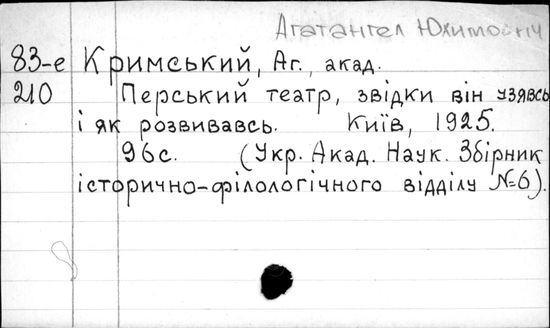 Агатангел Юхимович
83-е Кримський, Аг., акад.
210 Перський театр, звідки він узявсь
і як розвивавсь. Київ, 1925.
96с. (Укр. Акад. Наук. Збірник
історично-філологічного відділу №6).